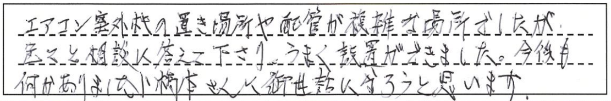 エアコン室外機の置き場所や配管が複雑な場所でしたが、
色々と相談に答えて下さり、うまく設置ができました。今後も
何かありましたら橋本さんに御世話になろうと思います。